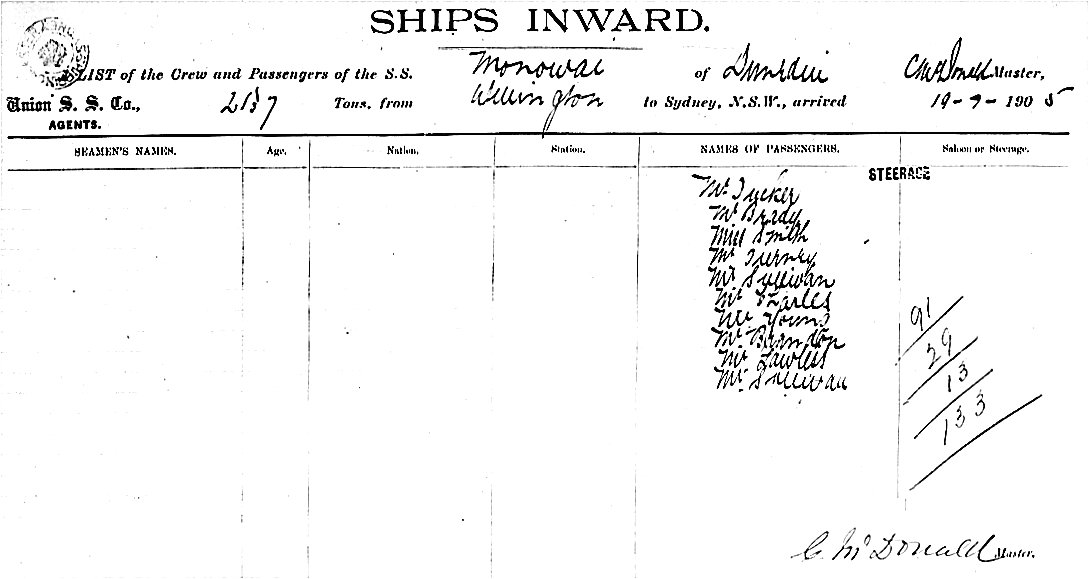 SHIPS INWARD.
LIST of the Crew and Passengers of the S.S. Monowai of Dunedin C McDonald Master,
Union S. S. Co., 2137 Tons, from Wellington to Sydney, N.S.W., arrived 19-9-1905
AGENTS.
SEAMEN'S NAMES. Age. Nation. Station. NAMES OF PASSENGERS. Saloon or Steerage.
STEERAGE
Mr Tucker
Mr Brady
Miss Smith
Mr Tierney
Mr Sullivan
Mr Charles
Mr Young
Mr Brandon
Mr Lawless
Mr Sullivan
91
29
13
133
C. McDonald Master.